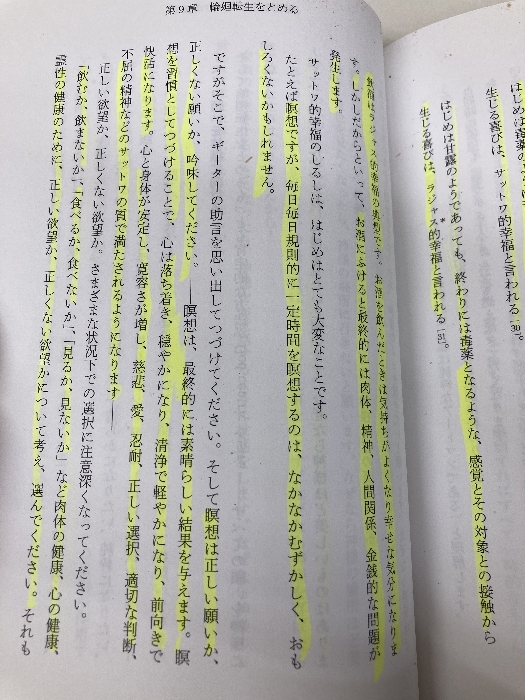 第9章　輪廻転生をとめる
はじめは毒薬の
生じる喜びは、サットワ的
[30]。
はじめは甘露のようであっても、終わりには毒薬となるような、感覚とその対象との接触から
生じる喜びは、ラジャス*的幸福と言われる[31]。
飲酒はラジャス的幸福の典型です。お酒を飲んだときは気持ちがよくなり幸せな気分になりま
す。しかしだからといって、お酒にふけると最終的には肉体、精神、人間関係、金銭的な問題が
発生します。
サットワ的幸福のしるしは、はじめはとても大変なことです。
たとえば瞑想ですが、毎日毎日規則的に一定時間を瞑想するのは、なかなかむずかしく、おも
しろくないかもしれません。
ですがそこで、ギーターの助言を思い出してつづけてください。そして瞑想は正しい願いか、
正しくない願いか、吟味してください。――瞑想は、最終的には素晴らしい結果を与えます。瞑
想を習慣としてつづけることで、心は落ち着き、穏やかになり、清浄で軽やかになり、前向きで
快活になります。心と身体が安定し、寛容さが増し、慈悲、愛、忍耐、正しい選択、適切な判断、
不屈の精神などのサットワの質で満たされるようになります――
正しい欲望か、正しくない欲望か。さまざまな状況下での選択に注意深くなってください。
「飲むか、飲まないか」、「食べるか、食べないか」、「見るか、見ないか」など肉体の健康、心の健康、
霊性の健康のために、正しい欲望か、正しくない欲望かについて考え、選んでください。それも